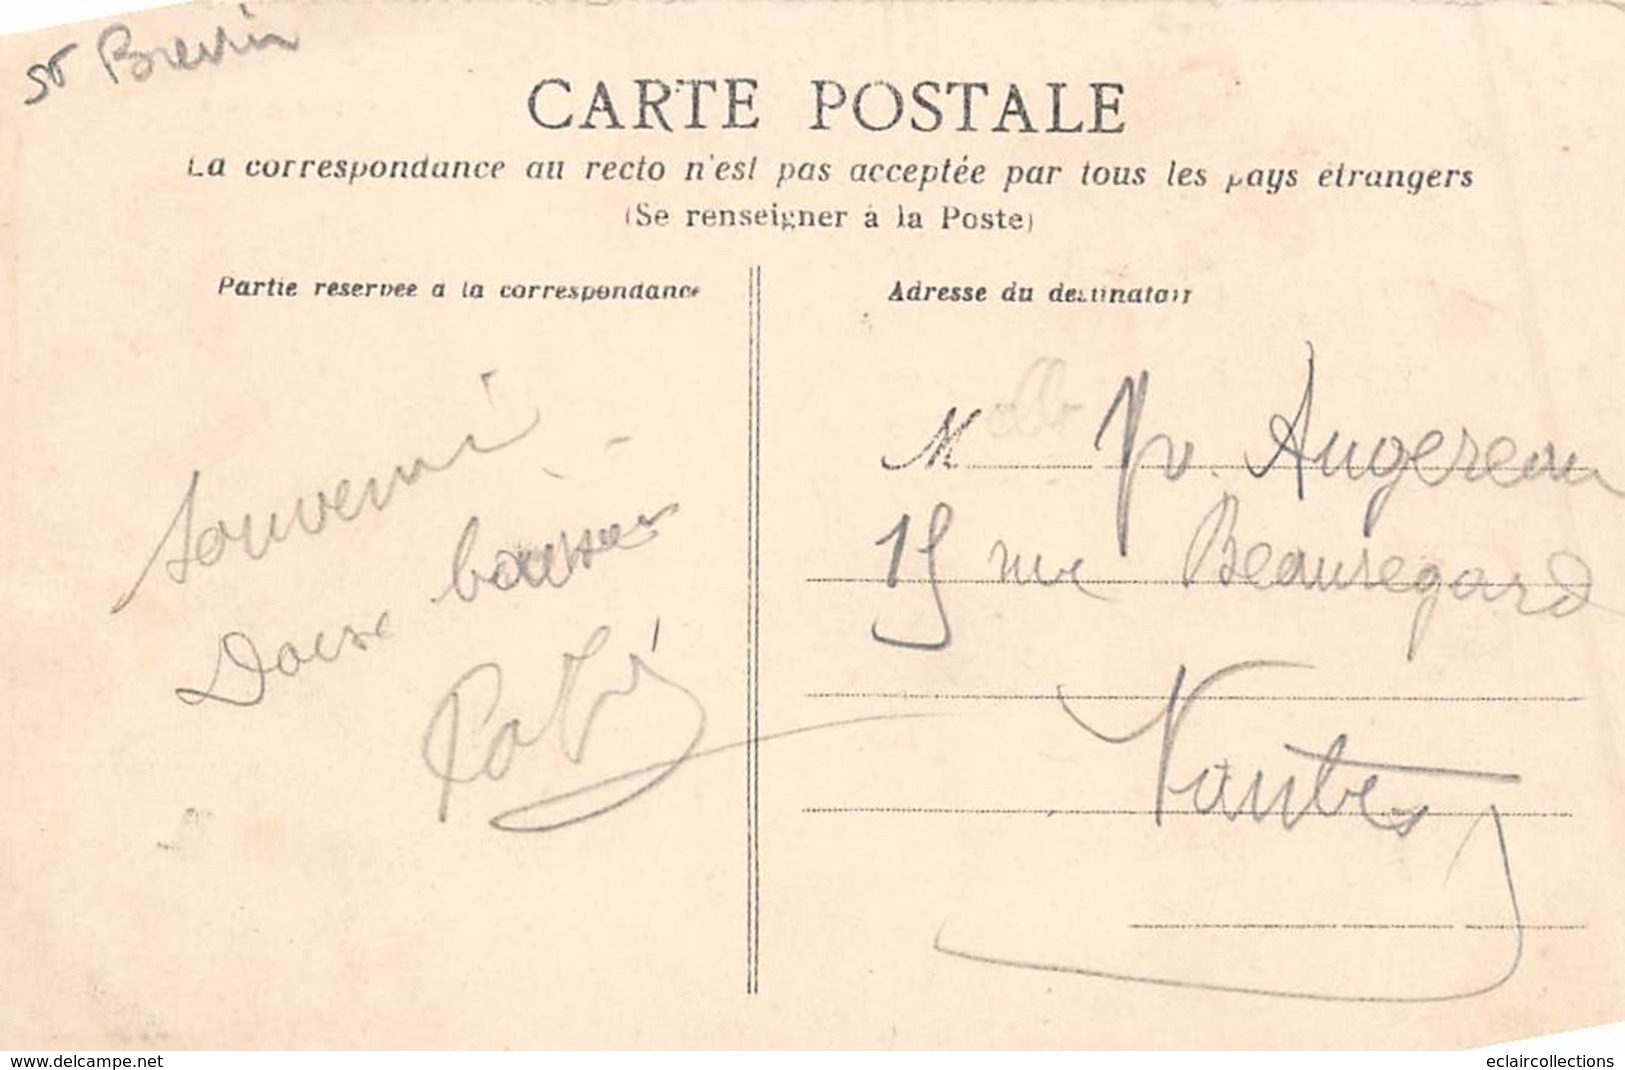 St Brevin
CARTE POSTALE
La correspondance au recto n'est pas acceptée par tous les pays étrangers
(Se renseigner à la Poste)
Partie réservée à la correspondance
Adresse du destinataire
Souvenir
Doux baisers
M elle Yv. Augereau
15 rue Beauregard
Nantes
www.delcampe.net
eclaircollections